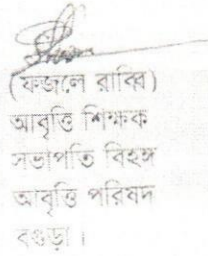 (ফজলে রাব্বি)
আবৃত্তি শিক্ষক
সভাপতি বিহঙ্গ
আবৃত্তি পরিষদ
বগুড়া।